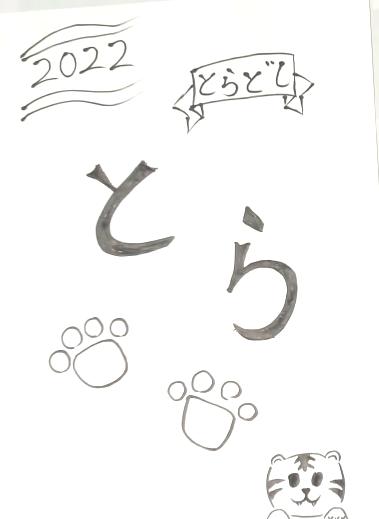 2022
とらどし
とら